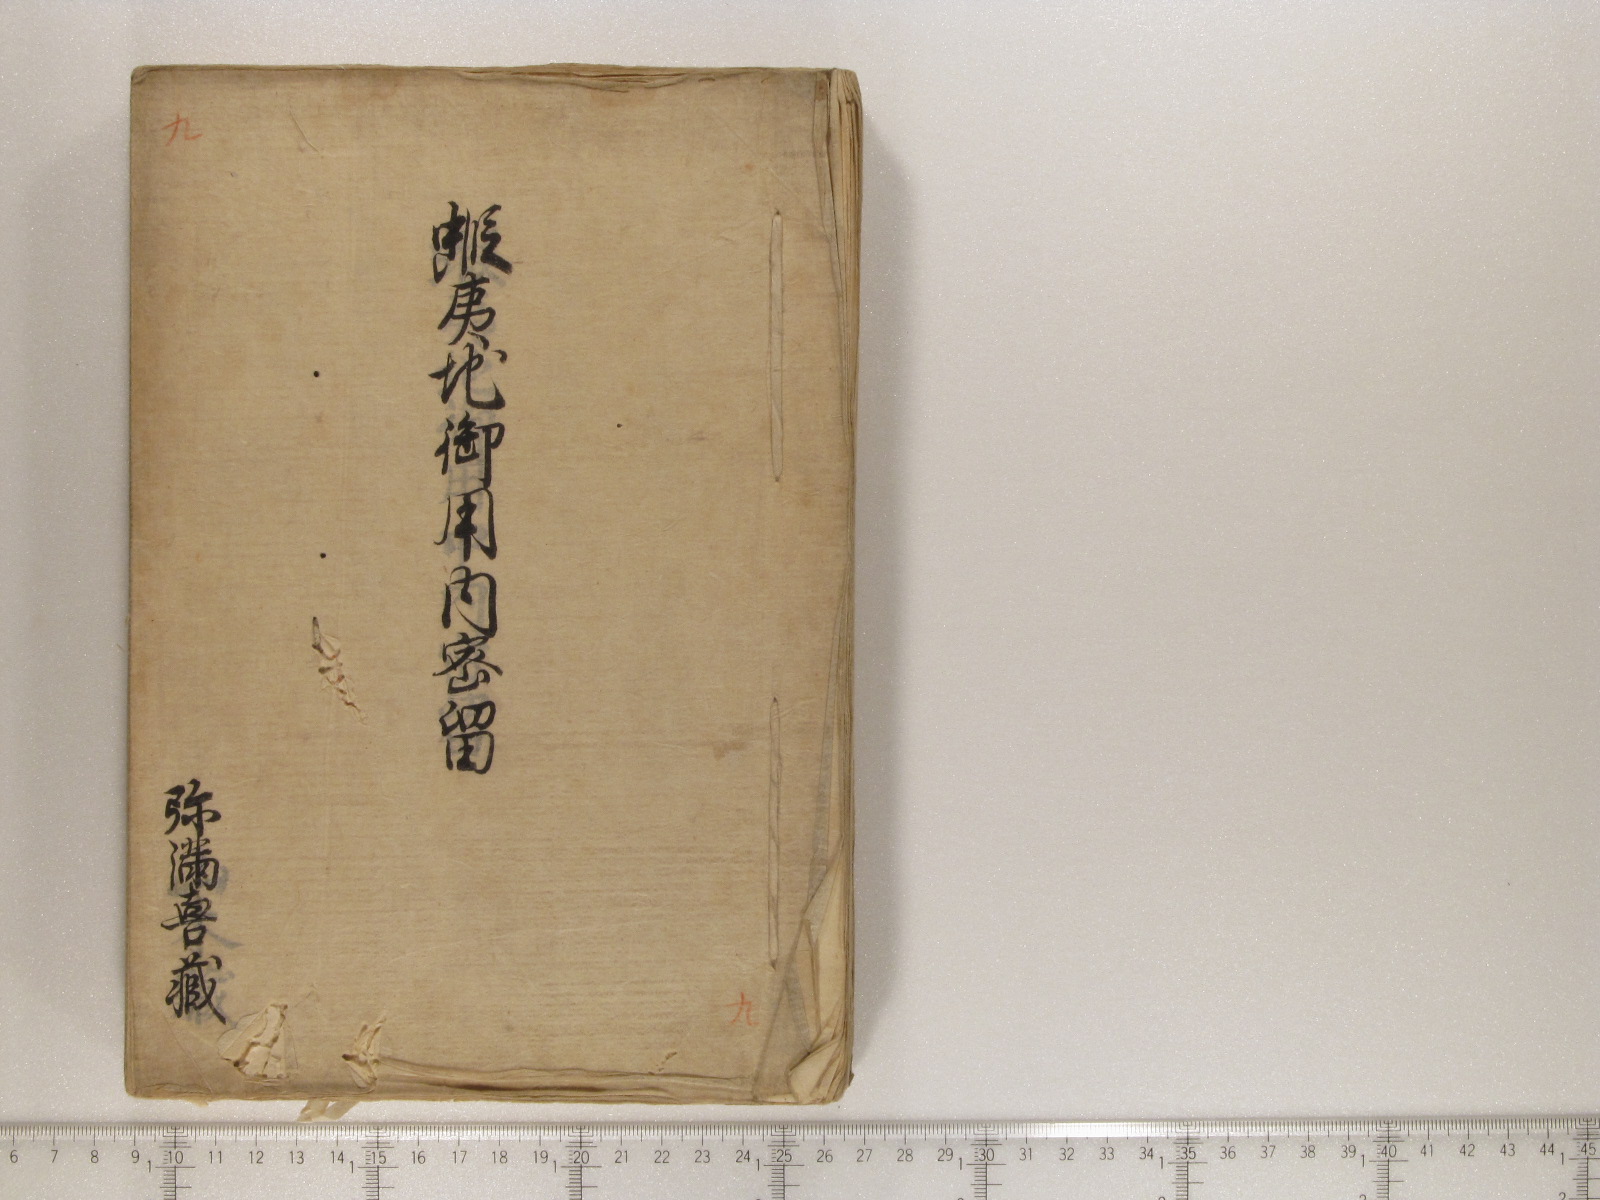 九
蝦夷地御用内密留
弥満喜蔵
九
6 7 8 9 10 11 12 13 14 15 16 17 18 19 20 21 22 23 24 25 26 27 28 29 30 31 32 33 34 35 36 37 38 39 40 41 42 43 44 45
1 1 1 1 1 1 1 1
2 2 2 2